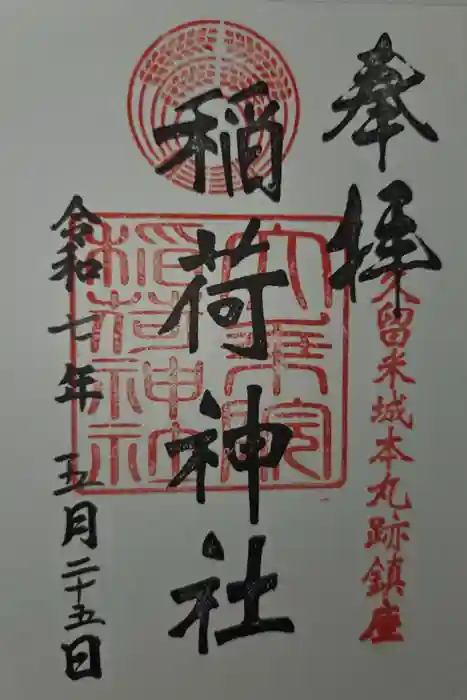 奉拝
久留米城本丸跡鎮座
稲荷神社
大乗院
稲荷神社
令和七年 五月二十五日